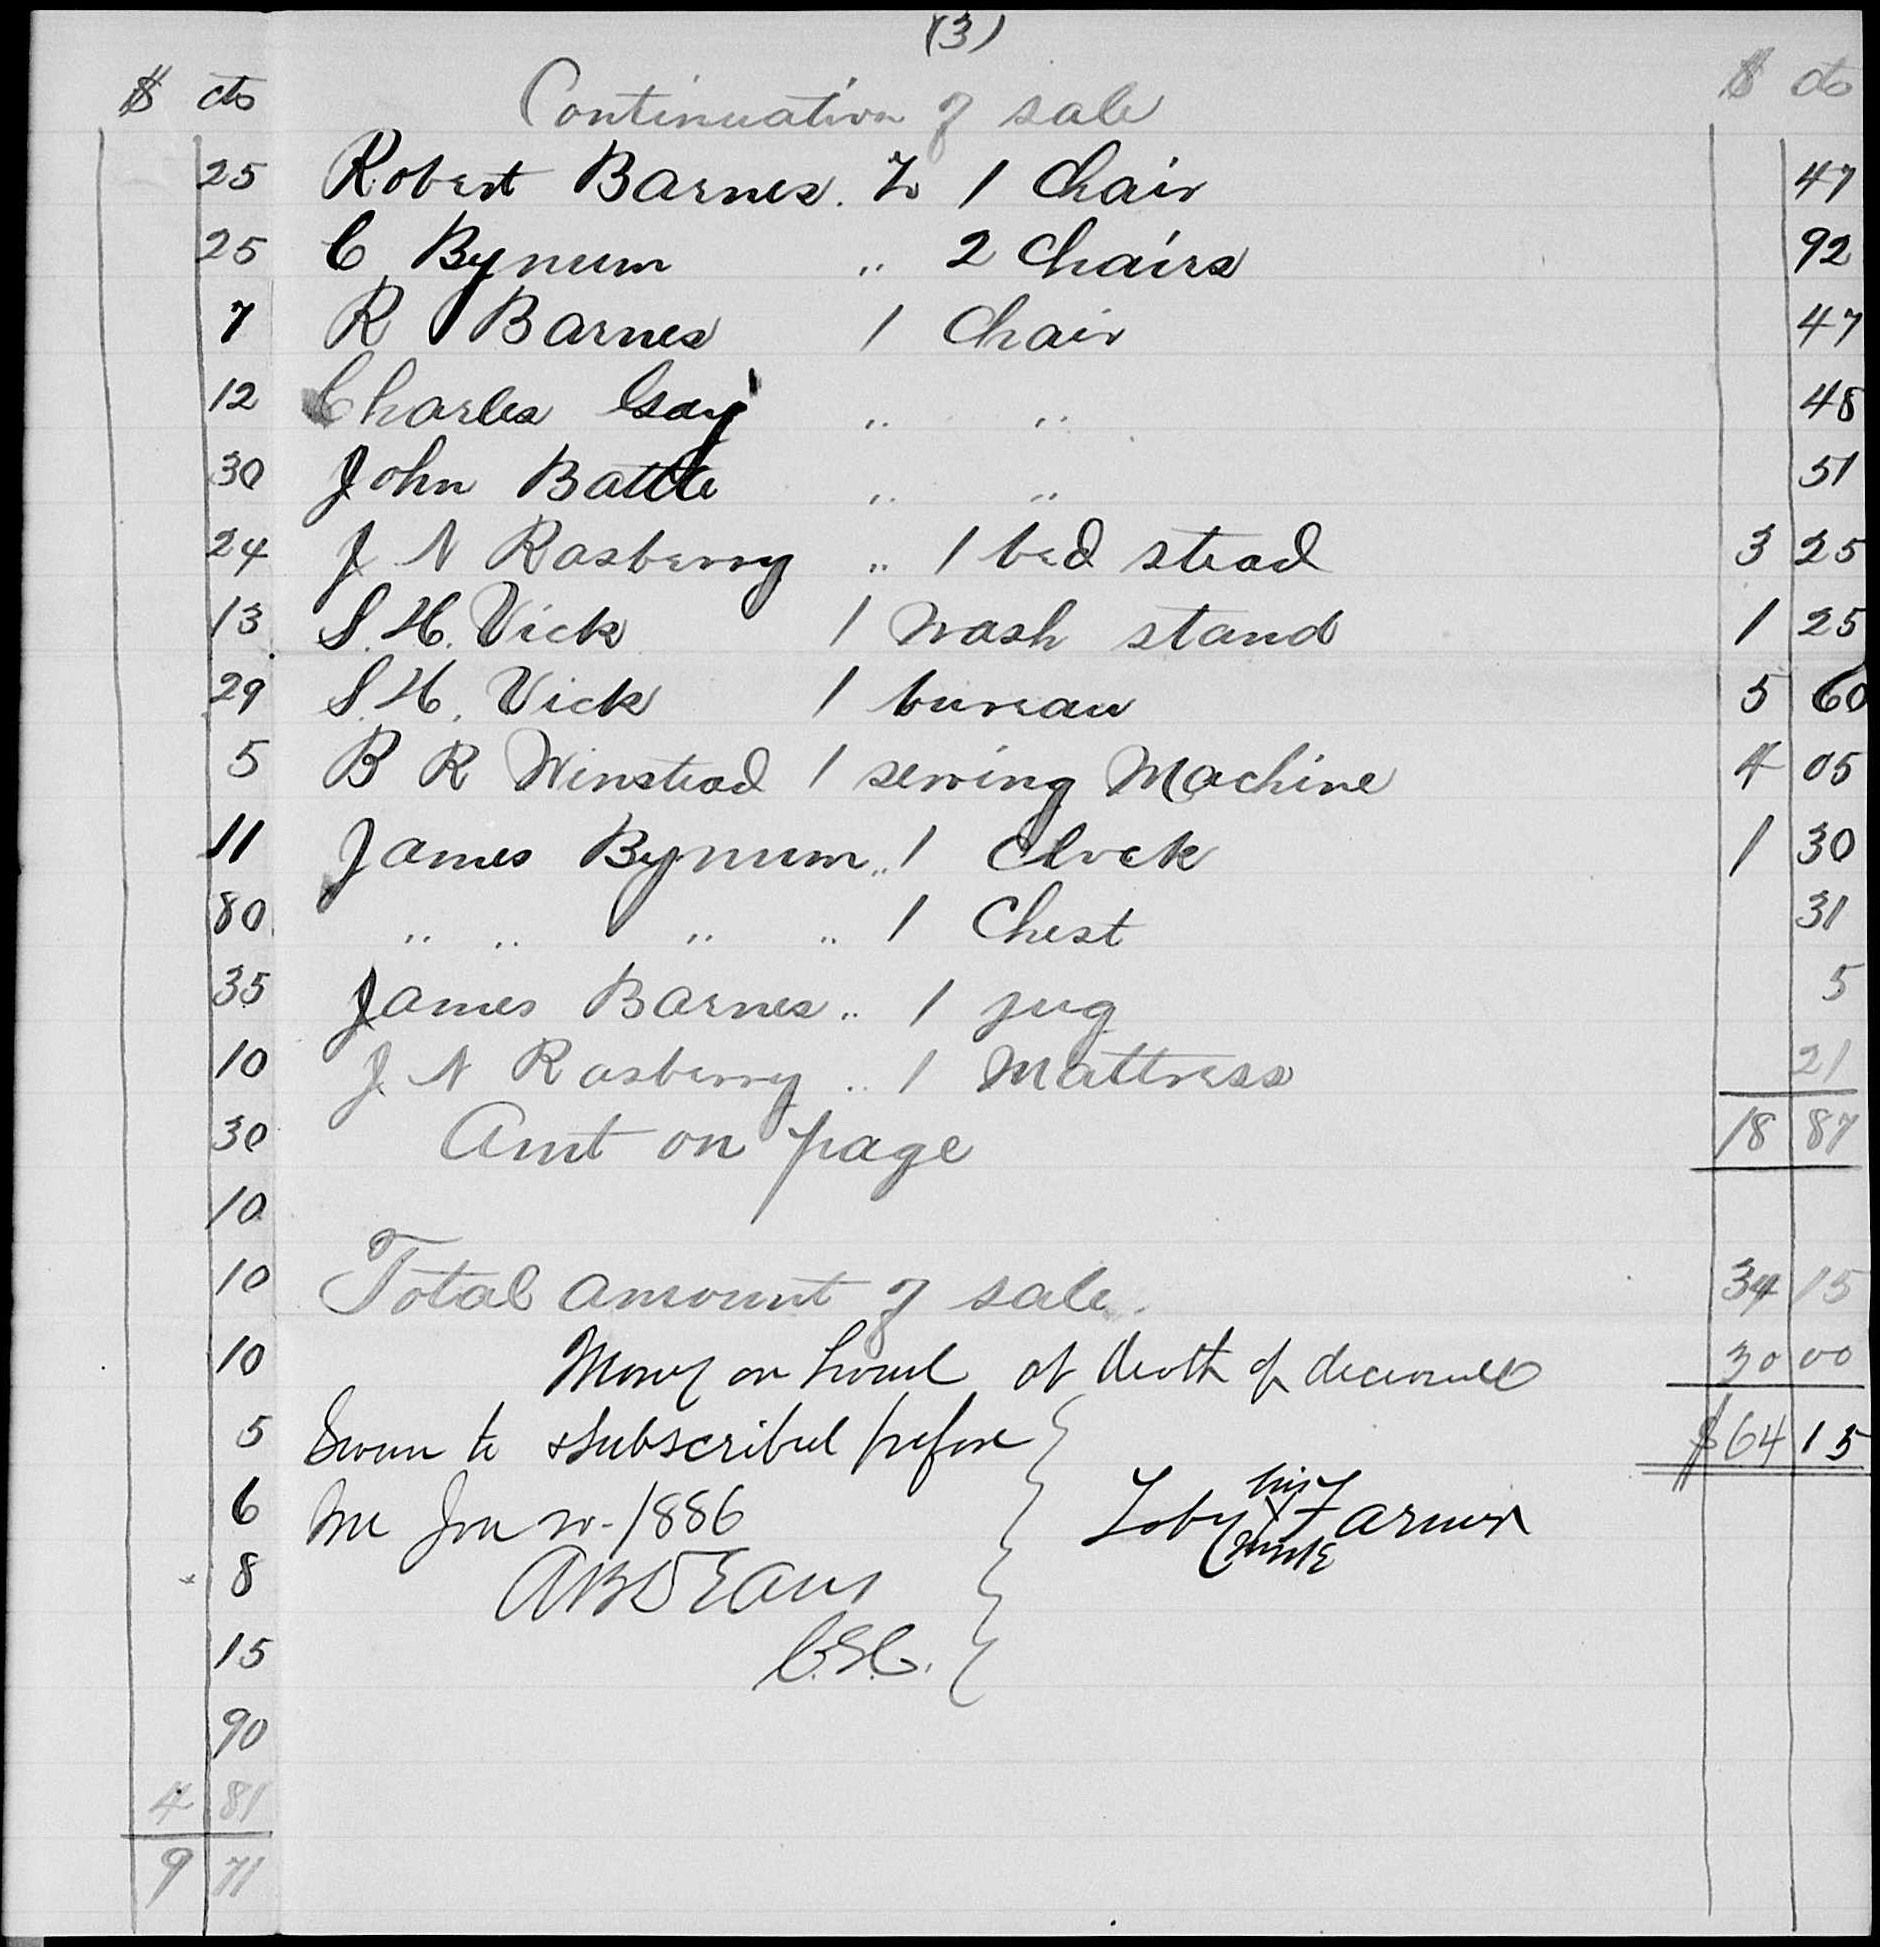 (3)
$ cts Continuation of sale $ cts
25 Robert Barnes. To 1 Chair 47
25 C Bynum " 2 Chairs 92
7 R Barnes 1 Chair 47
12 Charles Gay " " 48
30 John Battle " " 51
24 J N Rasberry " 1 bed stead 3 25
13 S. H. Vick 1 Wash stand 1 25
29 S. H. Vick 1 bureau 5 60
5 B R Winstead 1 sewing Machine 4 05
11 James Bynum " 1 Clock 1 30
80 " " " " 1 Chest 31
35 James Barnes " 1 jug 5
10 J N Rasberry " 1 Mattress 21
30 Amt on page 18 87
10
10 Total amount of sale. 34 15
10 Money on hand at death of deceased 30 00
5 Sworn to & subscribed before $64 15
6 me Jan 1886 Toby his X mark Farmer
8 A B Deans
15 C.S.C.
90
4 81
9 71